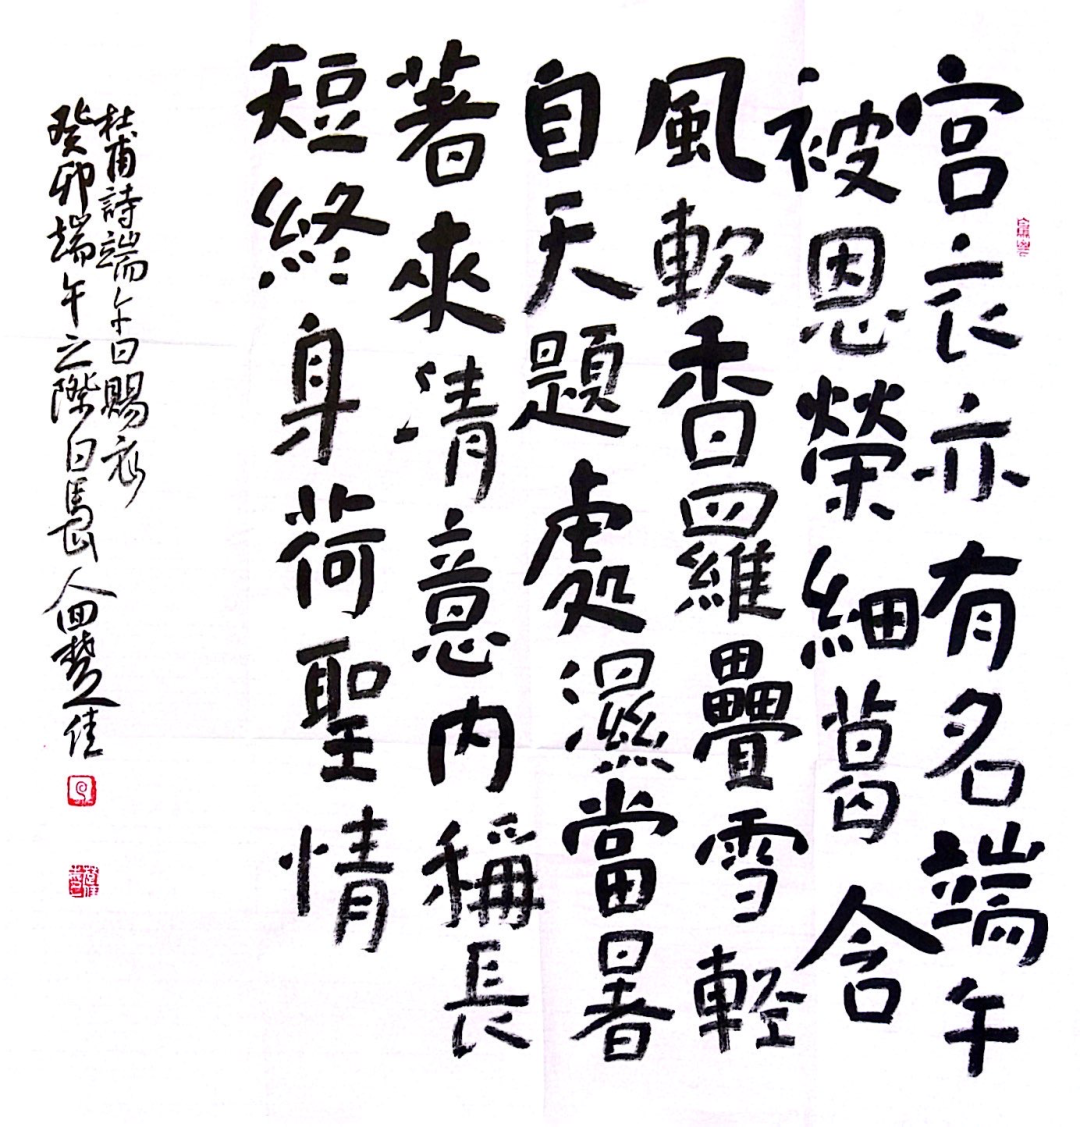 宮衣亦有名端午
被恩榮細葛含
風軟香羅疊雪輕
自天題處濕當暑
著來清意內稱長
短終身荷聖情
杜甫詩端午日賜衣
癸卯端午之際